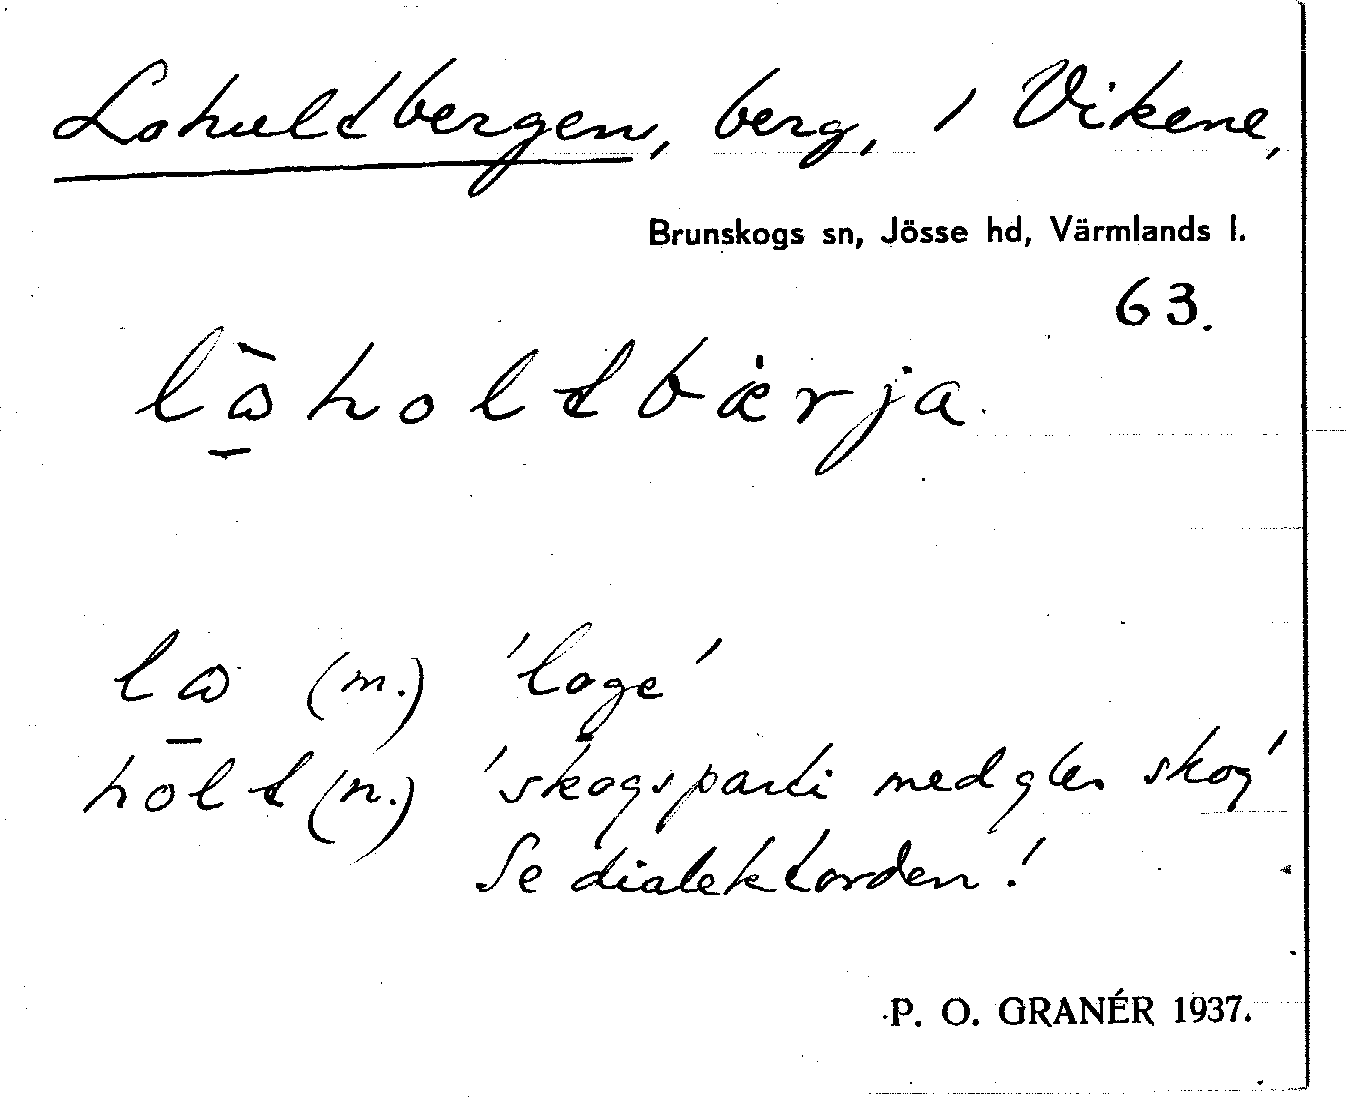 Lohultbergen, berg, i Vikene,
Brunskogs sn, Jösse hd, Värmlands l.
63.
lɷ̠̀holtbærja.
lɷ̠ (m.) 'loge'
holt (n.) 'skogsparti med gles skog'
Se dialektorden!
P. O. GRANÉR 1937.